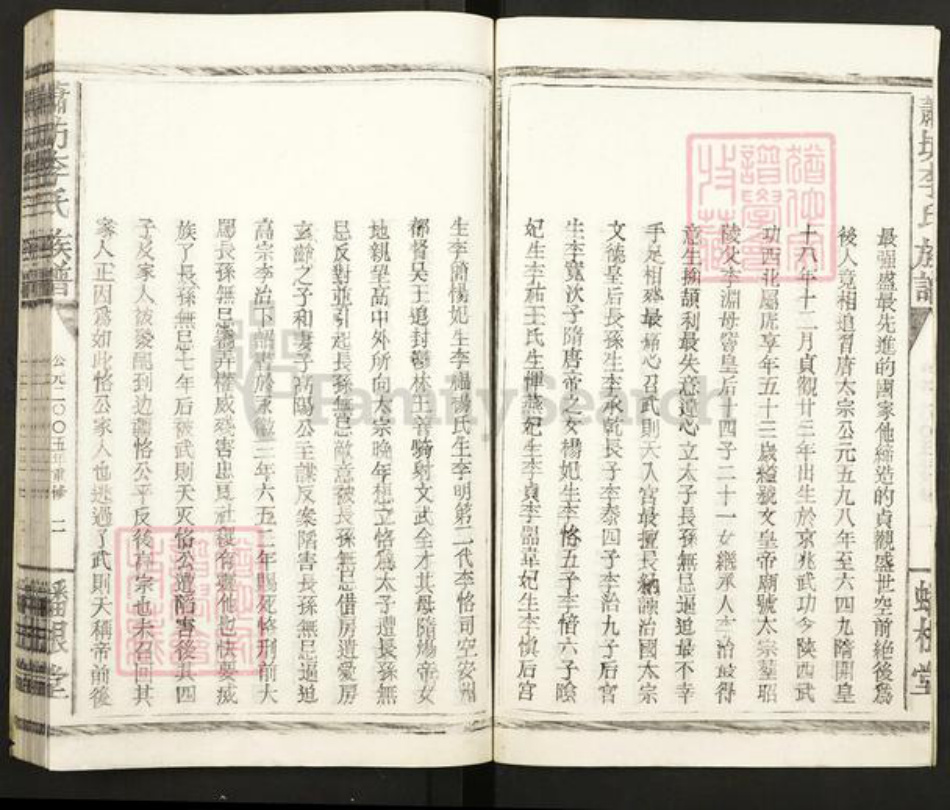 最強盛最先進的國家他締造的貞觀盛世空前絕後爲
後人竟相追習唐太宗公元五九八年至六四九隋開皇
十八年十二月貞觀廿三年出生於京兆武功今陝西武
功西北屬虎享年五十三歲縊號文皇帝廟號太宗墓昭
陵父李淵母竇皇后十四子二十一女繼承人李治最得
意生擒頡利最失意違心立太子長孫無忌逼迫最不幸
手足相殘最痛心召武則天入宮最擅長納諫治國太宗
文德皇后長孫生李承乾長子李泰四子李治九子后宮
生李寬次子隋唐帝之女楊妃生李恪五子李愔六子陰
妃生李祐王氏生惲燕妃生李貞李囂韋妃生李慎后宮
生李 楊妃生李福楊氏生李明第二代李恪司空安州
都督吴王追封鬱林王善騎射文武全才其母隋煬帝女
地親望高中外所向太宗晚年想立恪爲太子遭長孫無
忌反對並引起長孫無忌敵意被長孫無忌借房遺愛房
玄齡之子和妻子高陽公主謀反案陷害長孫無忌逼迫
高宗李治下詔書於永徽三年六五二年賜死恪刑前大
罵長孫無忌竊弄權威殘害忠良社稷有靈他也快要滅
族了長孫無忌七年后被武則天灭恪公遭陷害後其四
子及家人被發配到边疆恪公平反後高宗也未召回其
家人正因爲如此恪公家人也逃過了武則天稱帝前後
蕭坊李氏 族譜
公元二〇〇五年重修 二
蟠根堂
FamilySearch